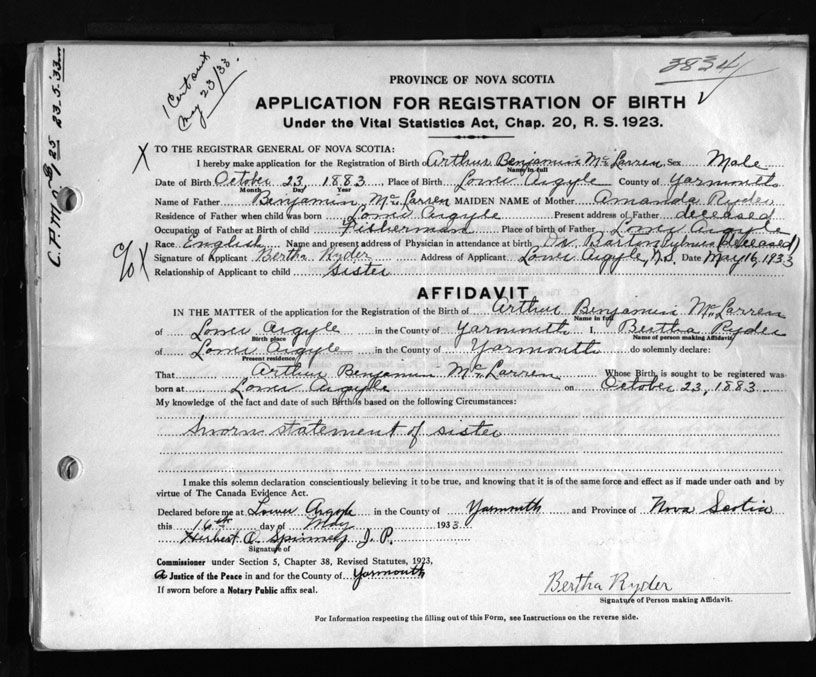 1 Cert out
May 23/33.
3834
C.P.M.O. 25 23.5.33
PROVINCE OF NOVA SCOTIA
APPLICATION FOR REGISTRATION OF BIRTH
Under the Vital Statistics Act, Chap. 20, R. S. 1923.
X TO THE REGISTRAR GENERAL OF NOVA SCOTIA:
I hereby make application for the Registration of Birth Arthur Benjamin McLarren Sex Male
Name in full
Date of Birth October 23, 1883, Place of Birth Lower Argyle County of Yarmouth
Month Day Year
Name of Father Benjamin McLarren MAIDEN NAME of Mother Amanda Ryder
Residence of Father when child was born Lower Argyle Present address of Father deceased
Occupation of Father at Birth of child Fisherman Place of birth of Father Lower Argyle
Race English Name and present address of Physician in attendance at birth Dr. Barton (deceased)
c/o X Signature of Applicant Bertha Ryder Address of Applicant Lower Argyle, N.S. Date May 16, 1933
Relationship of Applicant to child sister
AFFIDAVIT
IN THE MATTER of the application for the Registration of the Birth of Arthur Benjamin McLarren
Name in full
of Lower Argyle in the County of Yarmouth I, Bertha Ryder
Birth place Name of person making Affidavit
of Lower Argyle in the County of Yarmouth do solemnly declare:
Present residence
That Arthur Benjamin McLarren Whose Birth is sought to be registered was
born at Lower Argyle on October 23, 1883.
My knowledge of the fact and date of such Birth is based on the following Circumstances:
Sworn statement of sister
I make this solemn declaration conscientiously believing it to be true, and knowing that it is of the same force and effect as if made under oath and by
virtue of The Canada Evidence Act.
Declared before me at Lower Argyle in the County of Yarmouth and Province of Nova Scotia
this 16th day of May 1933
Herbert A. Spinney J. P.
Signature of
Commissioner under Section 5, Chapter 38, Revised Statutes, 1923,
A Justice of the Peace in and for the County of Yarmouth
If sworn before a Notary Public affix seal.
Bertha Ryder
Signature of Person making Affidavit.
For Information respecting the filling out of this Form, see Instructions on the reverse side.